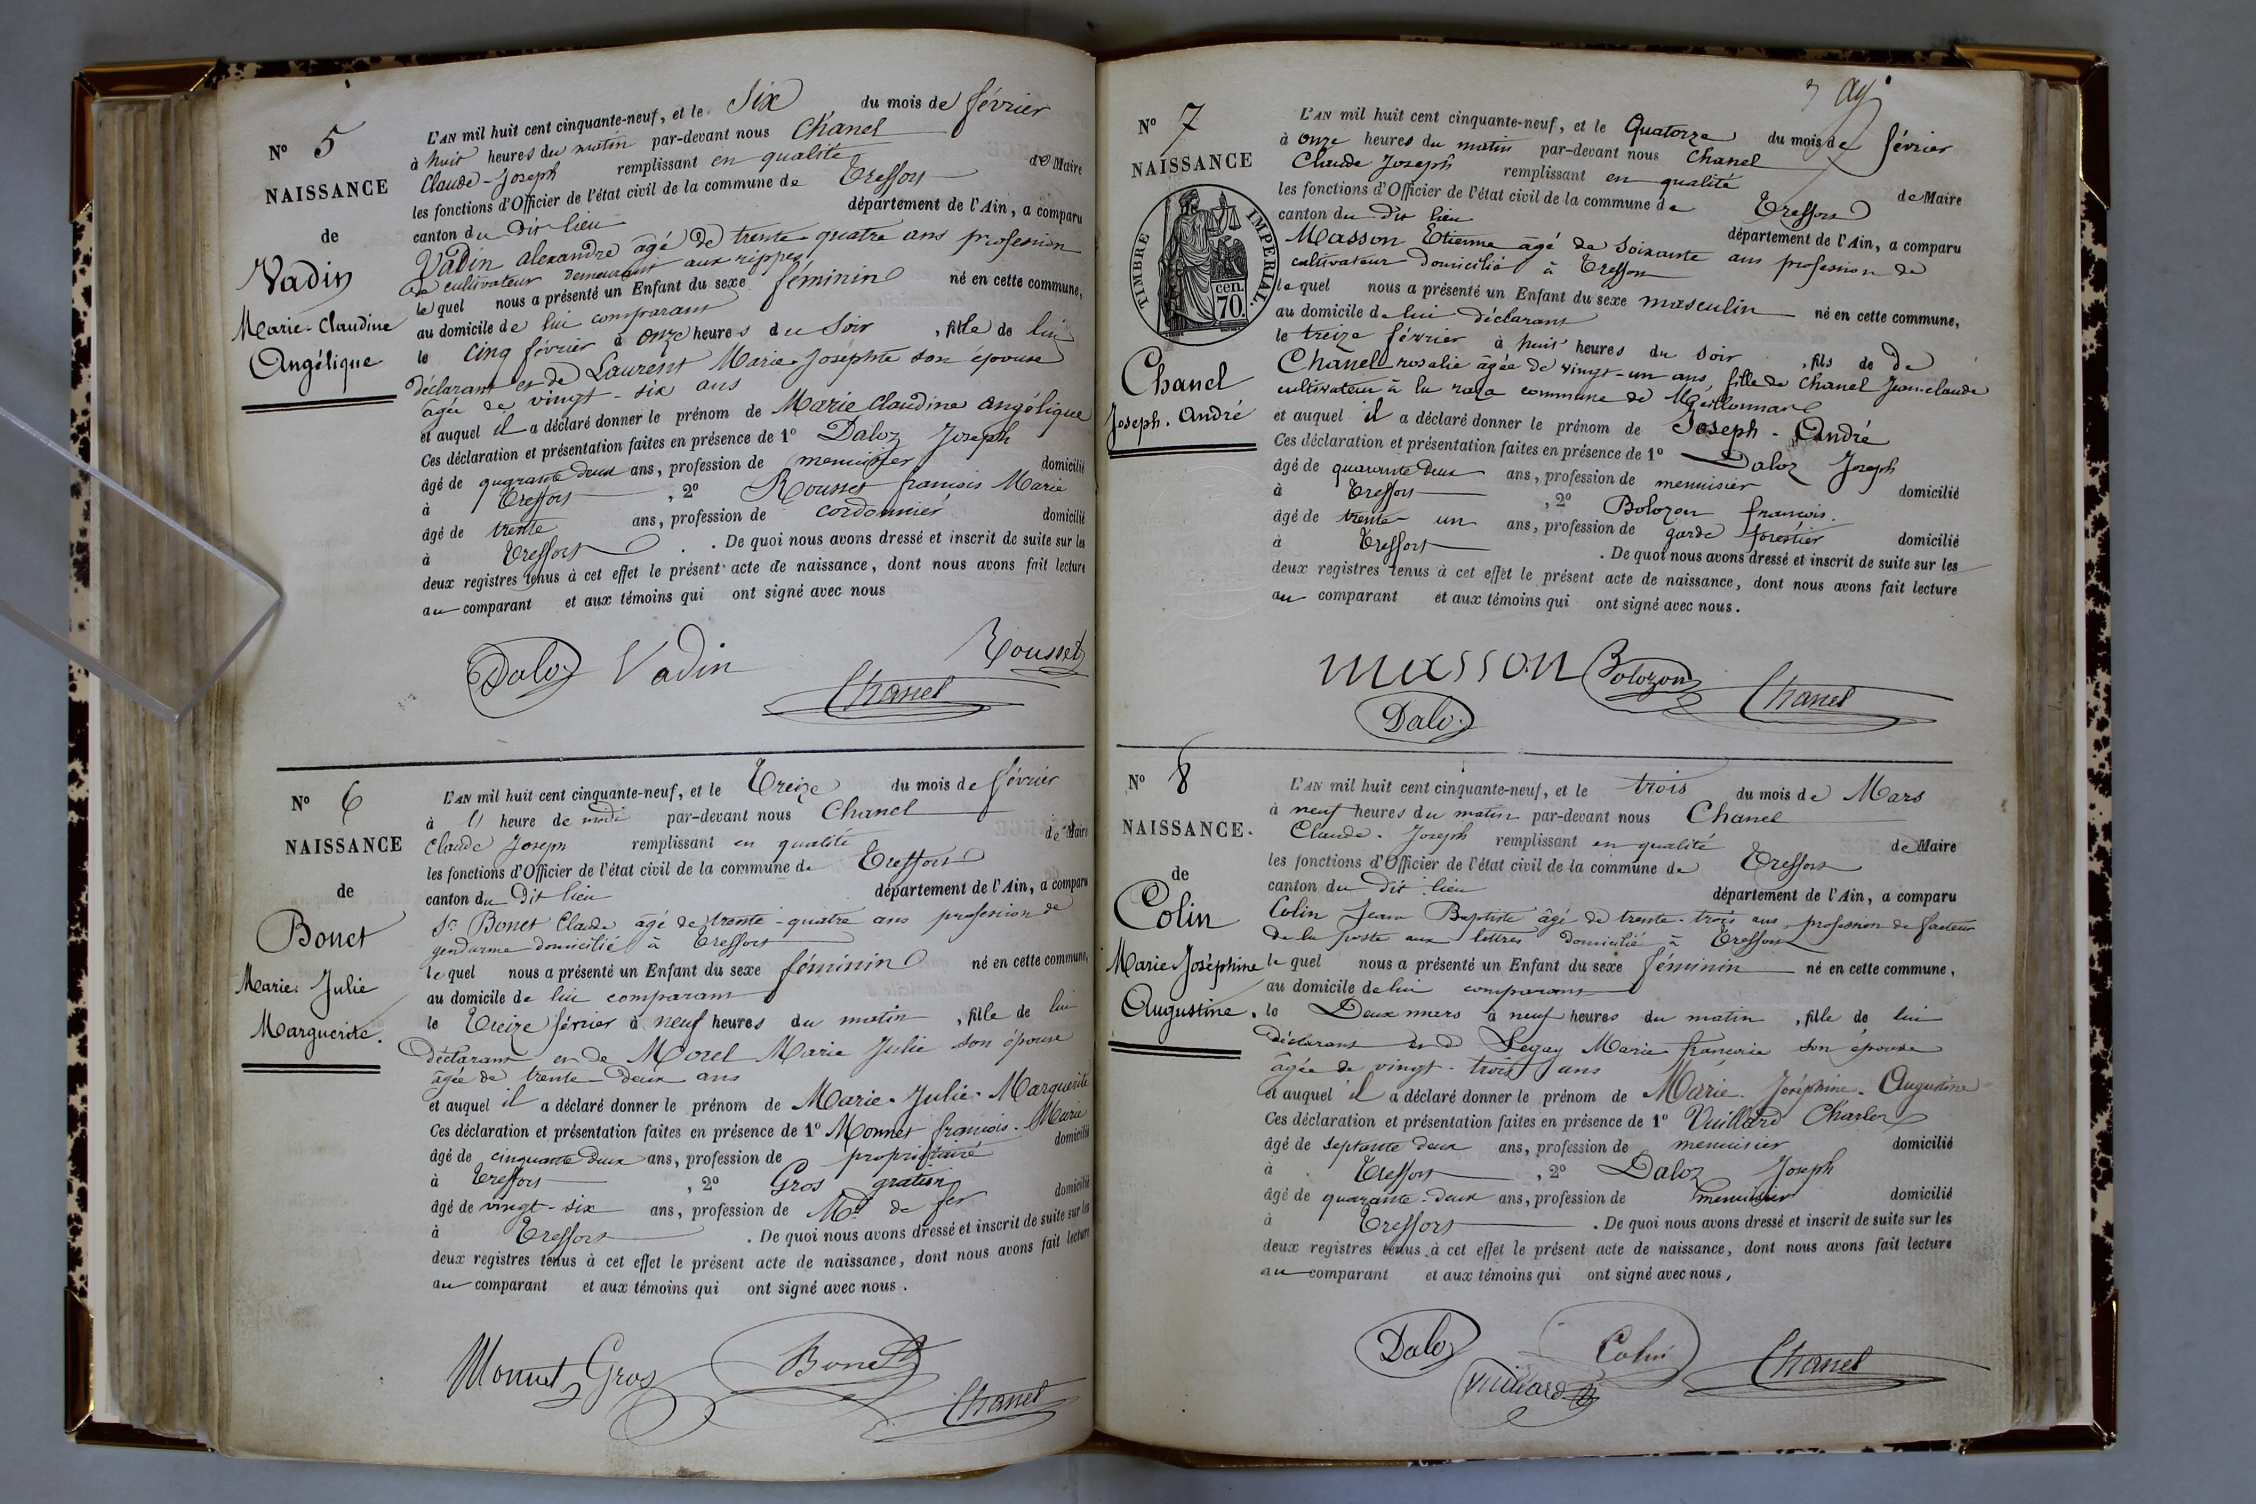 N° 5
NAISSANCE
de
Vadin
Marie-Claudine
Angélique
L'AN mil huit cent cinquante-neuf, et le Six du mois de février
à huit heures du matin par-devant nous Chanel
Claude-Joseph remplissant en qualité de Maire
les fonctions d'Officier de l'état civil de la commune de Treffort
canton du dit lieu département de l'Ain, a comparu
Vadin alexandre âgé de trente-quatre ans profession
de cultivateur demeurant aux rippes
le quel nous a présenté un Enfant du sexe féminin né en cette commune,
au domicile de lui comparant
le cinq février à onze heures du Soir, fille de lui
déclarant et de Laurent Marie-Joséphte son épouse
âgée de vingt-six ans
et auquel il a déclaré donner le prénom de Marie Claudine angélique
Ces déclaration et présentation faites en présence de 1° Daloz Joseph
âgé de quarante deux ans, profession de menuisier domicilié
à Treffort, 2° Rousset francois Marie
âgé de trente ans, profession de cordonnier domicilié
à Treffort. De quoi nous avons dressé et inscrit de suite sur les
deux registres tenus à cet effet le présent acte de naissance, dont nous avons fait lecture
au comparant et aux témoins qui ont signé avec nous
Daloz Vadin Rousset
Chanel
N° 6
NAISSANCE
de
Bonet
Marie-Julie
Marguerite.
L'AN mil huit cent cinquante-neuf, et le Treize du mois de février
à heure de midi par-devant nous Chanel
Claude Joseph remplissant en qualité de Maire
les fonctions d'Officier de l'état civil de la commune de Treffort
canton du Dit lieu département de l'Ain, a comparu
Sr Bonet Claude âgé de trente-quatre ans profession de
gendarme domicilié à Treffort
le quel nous a présenté un Enfant du sexe féminin né en cette commune,
au domicile de lui comparant
le Treize février à neuf heures du matin, fille de lui
déclarant et de Morel Marie Julie son épouse
âgée de trente-deux ans
et auquel il a déclaré donner le prénom de Marie-Julie-Marguerite
Ces déclaration et présentation faites en présence de 1° Monnet francois-Marie
âgé de cinquante deux ans, profession de propriétaire domicilié
à Treffort, 2° Gros gratien
âgé de vingt-six ans, profession de Md de fer domicilié
à Treffort. De quoi nous avons dressé et inscrit de suite sur les
deux registres tenus à cet effet le présent acte de naissance, dont nous avons fait lecture
au comparant et aux témoins qui ont signé avec nous.
Monnet Gros Bonet
Chanel
N° 7
NAISSANCE
TIMBRE IMPERIAL.
cen.
70.
Chanel
Joseph. André
L'AN mil huit cent cinquante-neuf, et le Quatorze du mois de février
à onze heures du matin par-devant nous Chanel
Claude Joseph remplissant en qualité de Maire
les fonctions d'Officier de l'état civil de la commune de Treffort
canton du Dit lieu département de l'Ain, a comparu
Masson Etienne âgé de soixante ans profession de
cultivateur domicilié à Treffort
le quel nous a présenté un Enfant du sexe masculin né en cette commune,
au domicile de lui déclarant
le treize février à huit heures du soir, fils de de
Chanel rosalie âgée de vingt-un ans, fille de Chanel Jean-claude
cultivateur à la raza commune de Meillonnas
et auquel il a déclaré donner le prénom de Joseph-André
Ces déclaration et présentation faites en présence de 1° Daloz Joseph
âgé de quarante deux ans, profession de menuisier domicilié
à Treffort, 2° Bolozon francois.
âgé de trente-un ans, profession de garde forestier domicilié
à Treffort. De quoi nous avons dressé et inscrit de suite sur les
deux registres tenus à cet effet le présent acte de naissance, dont nous avons fait lecture
au comparant et aux témoins qui ont signé avec nous.
masson Bolozon Chanel
Daloz
N° 8
NAISSANCE.
de
Colin
Marie-Joséphine
Augustine.
L'AN mil huit cent cinquante-neuf, et le trois du mois de Mars
à neuf heures du matin par-devant nous Chanel
Claude-Joseph remplissant en qualité de Maire
les fonctions d'Officier de l'état civil de la commune de Treffort
canton du dit lieu département de l'Ain, a comparu
Colin Jean Baptiste âgé de trente-trois ans profession de facteur
de la poste aux lettres domicilié à Treffort
le quel nous a présenté un Enfant du sexe féminin né en cette commune,
au domicile de lui comparant
le Deux mars à neuf heures du matin, fille de lui
déclarant et d Legay Marie francoise son épouse
âgée de vingt-trois ans
et auquel il a déclaré donner le prénom de Marie-Joséphine-Augustine
Ces déclaration et présentation faites en présence de 1° Vuillard Charles
âgé de septante deux ans, profession de menuisier domicilié
à Treffort, 2° Daloz Joseph
âgé de quarante-deux ans, profession de menuisier domicilié
à Treffort. De quoi nous avons dressé et inscrit de suite sur les
deux registres tenus à cet effet le présent acte de naissance, dont nous avons fait lecture
au comparant et aux témoins qui ont signé avec nous,
Daloz Colin Chanel
Vuillard